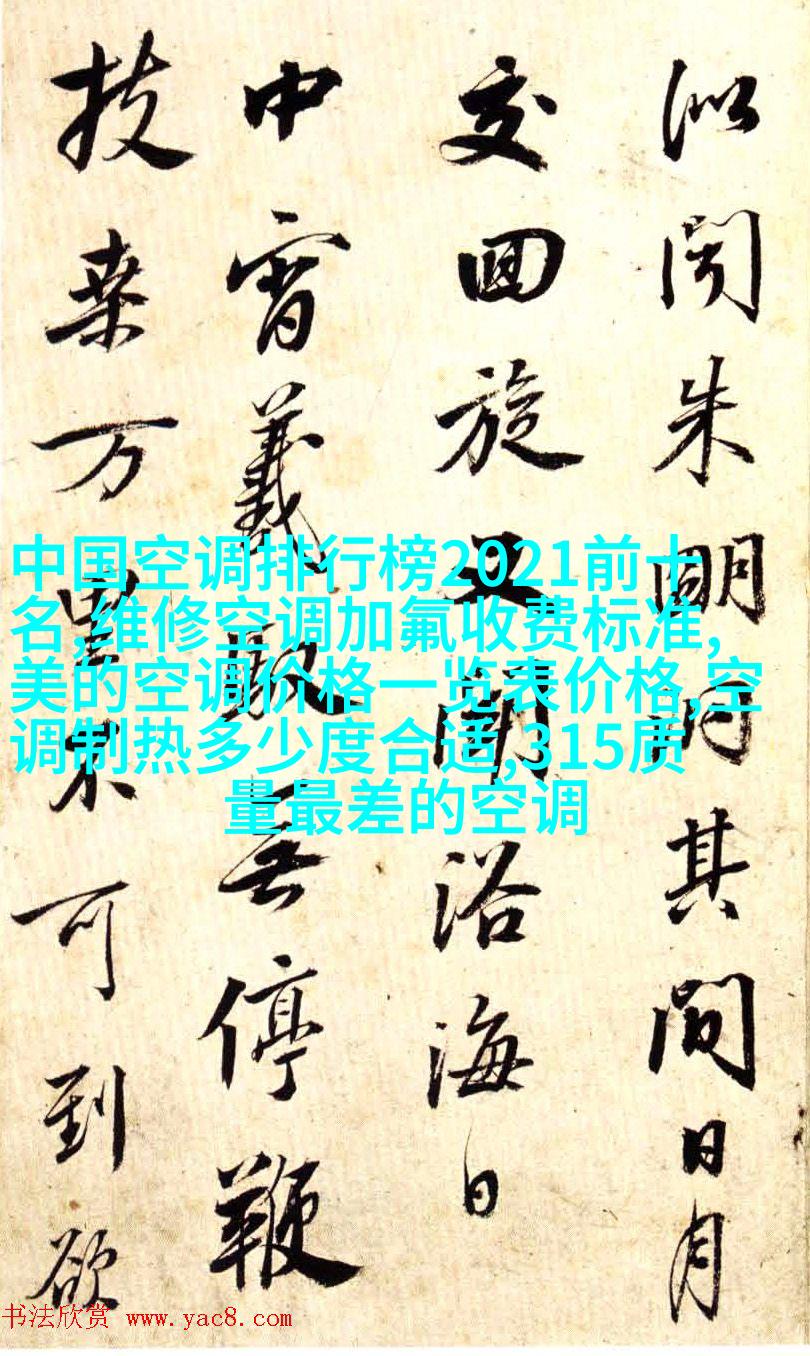 似聞朱明洞其間日月
交回旋又聞浴海日
中宵義馭无停鞭
扶桒万里不可到欲
中国空调排行榜2021前十
名,维修空调加氟收费标准,
美的空调价格一览表价格,空
调制热多少度合适,315质
量最差的空调
书法欣赏 www.yac8.com